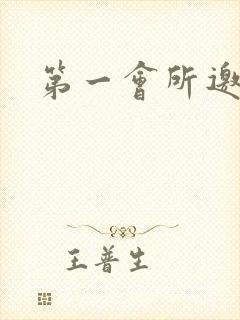 第一會所邀
王普生